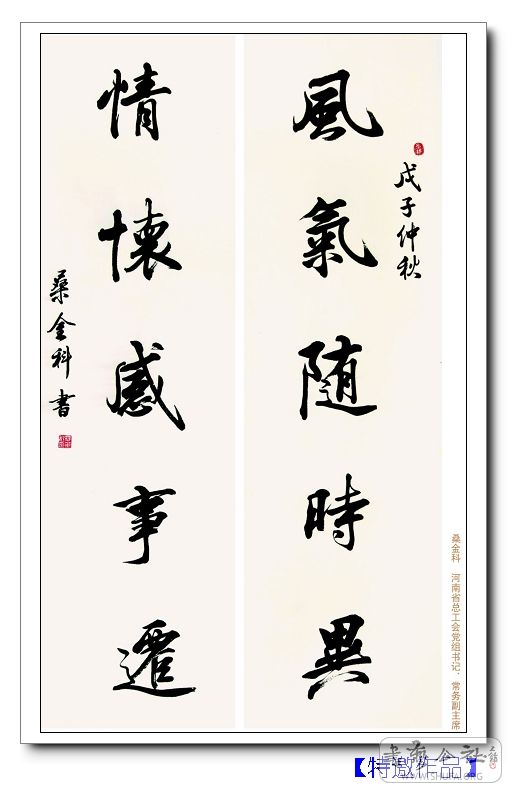 戊子仲秋
風氣隨時異
情懷感事遷
桑金科書
桑金科 河南省总工会党组书记、常务副主席
【特邀作品】
WWW.SHUFA.ORG